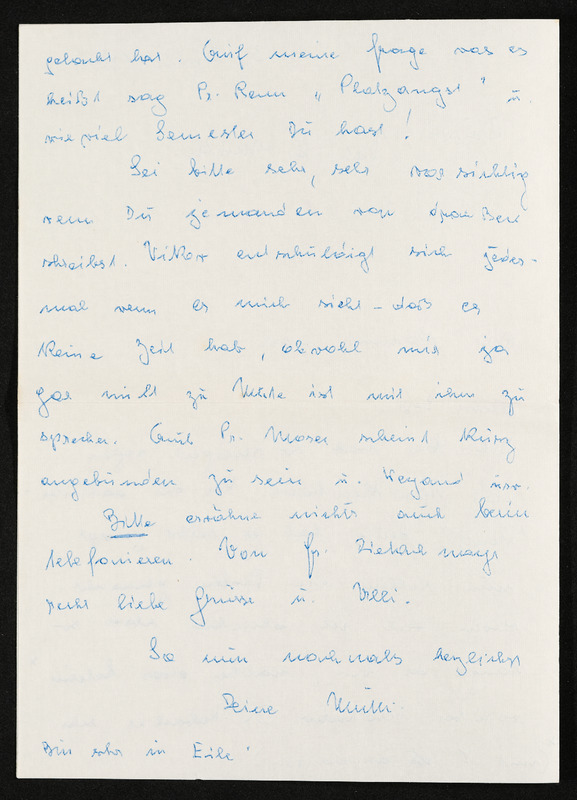 gebracht hat. Auf meine Frage was es
heißt sag Pr. Renn „Platzangst" u.
wie viel Semester Du hast!
Sei bitte sehr, sehr vorsichtig
wenn Du jemanden von draußen
schreibst. Viktor entschuldigt sich jedes-
mal wenn er mich sieht – daß er
keine Zeit hab, obwohl mir ja
gar nicht zu Mute ist mit ihm zu
sprechen. Auch Pr. Moser scheint kurz
angebunden zu sein u. Weyand usw.
Bitte erwähne nichts auch beim
telefonieren. Von Fr.
recht liebe Grüsse u. Willi.
So nun nochmals herzlichst
Deine Mutti.
Bin sehr in Eile